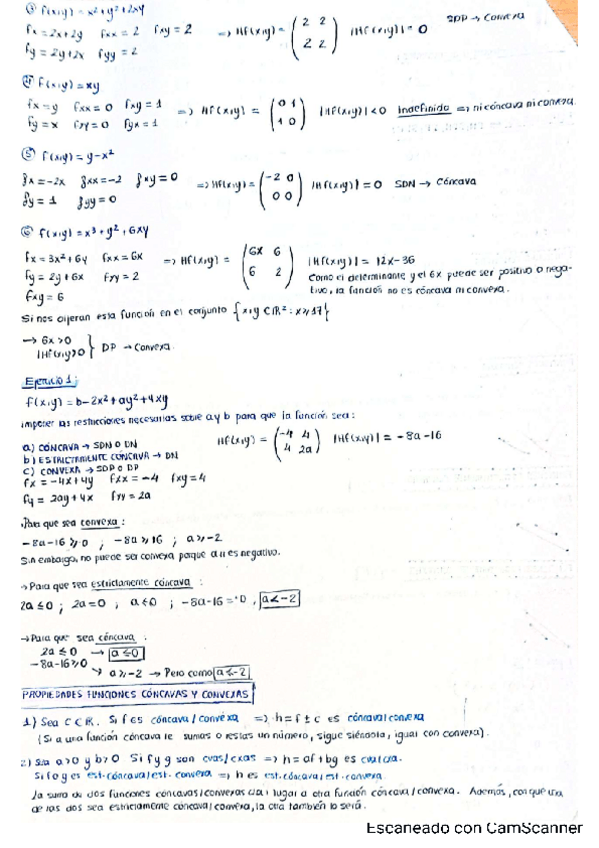 ③ f(x,y) = x²+y²+2xy
fx = 2x+2y fxx = 2 fxy = 2 => Hf(x,y) = (2 2 / 2 2) |Hf(x,y)| = 0 SDP → Convexa
fy = 2y+2x fyy = 2
④ f(x,y) = xy
fx = y fxx = 0 fxy = 1 => Hf(x,y) = (0 1 / 1 0) |Hf(x,y)| < 0 Indefinida => ni cóncava ni convexa.
fy = x fyy = 0 fyx = 1
⑤ f(x,y) = y-x²
fx = -2x fxx = -2 fxy = 0 => Hf(x,y) = (-2 0 / 0 0) |Hf(x,y)| = 0 SDN → Cóncava
fy = 1 fyy = 0
⑥ f(x,y) = x³+y²+6xy
fx = 3x²+6y fxx = 6x => Hf(x,y) = (6x 6 / 6 2) |Hf(x,y)| = 12x-36
fy = 2y+6x fyy = 2 Como el determinante y el 6x puede ser positivo o nega-
fxy = 6 tivo, la función no es cóncava ni convexa.
Si nos dijeran esta función en el conjunto {x,y ∈ R² : x ≥ 17}
→ 6x > 0
|Hf(x,y)| > 0 } DP → Convexa
Ejercicio 1:
f(x,y) = b-2x²+ay²+4xy
imponer las restricciones necesarias sobre a y b para que la función sea:
a) CÓNCAVA → SDN O DN Hf(x,y) = (-4 4 / 4 2a) |Hf(x,y)| = -8a-16
b) ESTRICTAMENTE CÓNCAVA → DN
c) CONVEXA → SDP O DP
fx = -4x+4y fxx = -4 fxy = 4
fy = 2ay+4x fyy = 2a
→Para que sea convexa:
-8a-16 ≥ 0 ; -8a ≥ 16 ; a ≥ -2
Sin embargo, no puede ser convexa porque a11 es negativo.
→ Para que sea estrictamente cóncava :
2a ≤ 0 ; 2a = 0 ; a ≤ 0 ; -8a-16 = 0 , a < -2
→Para que sea cóncava :
2a ≤ 0 → a ≤ 0
-8a-16 ≥ 0 → a ≥ -2 → Pero como a ≤ -2
PROPIEDADES FUNCIONES CÓNCAVAS Y CONVEXAS
1) Sea C ∈ R. Si f es cóncava / convexa => h = f ± c es cóncava/convexa
(Si a una función cóncava le sumas o restas un número, sigue siéndola, igual con convexa).
2) Sea a > 0 y b > 0 Si f y g son cvas/cxas => h = af + bg es cva/cxa.
Si f o g es est. cóncava/est. convexa => h es est. cóncava/est. convexa.
La suma de dos funciones cóncavas/convexas da lugar a otra función cóncava/convexa. Además, con que una
de las dos sea estrictamente cóncava/convexa, la otra también lo será.
Escaneado con CamScanner